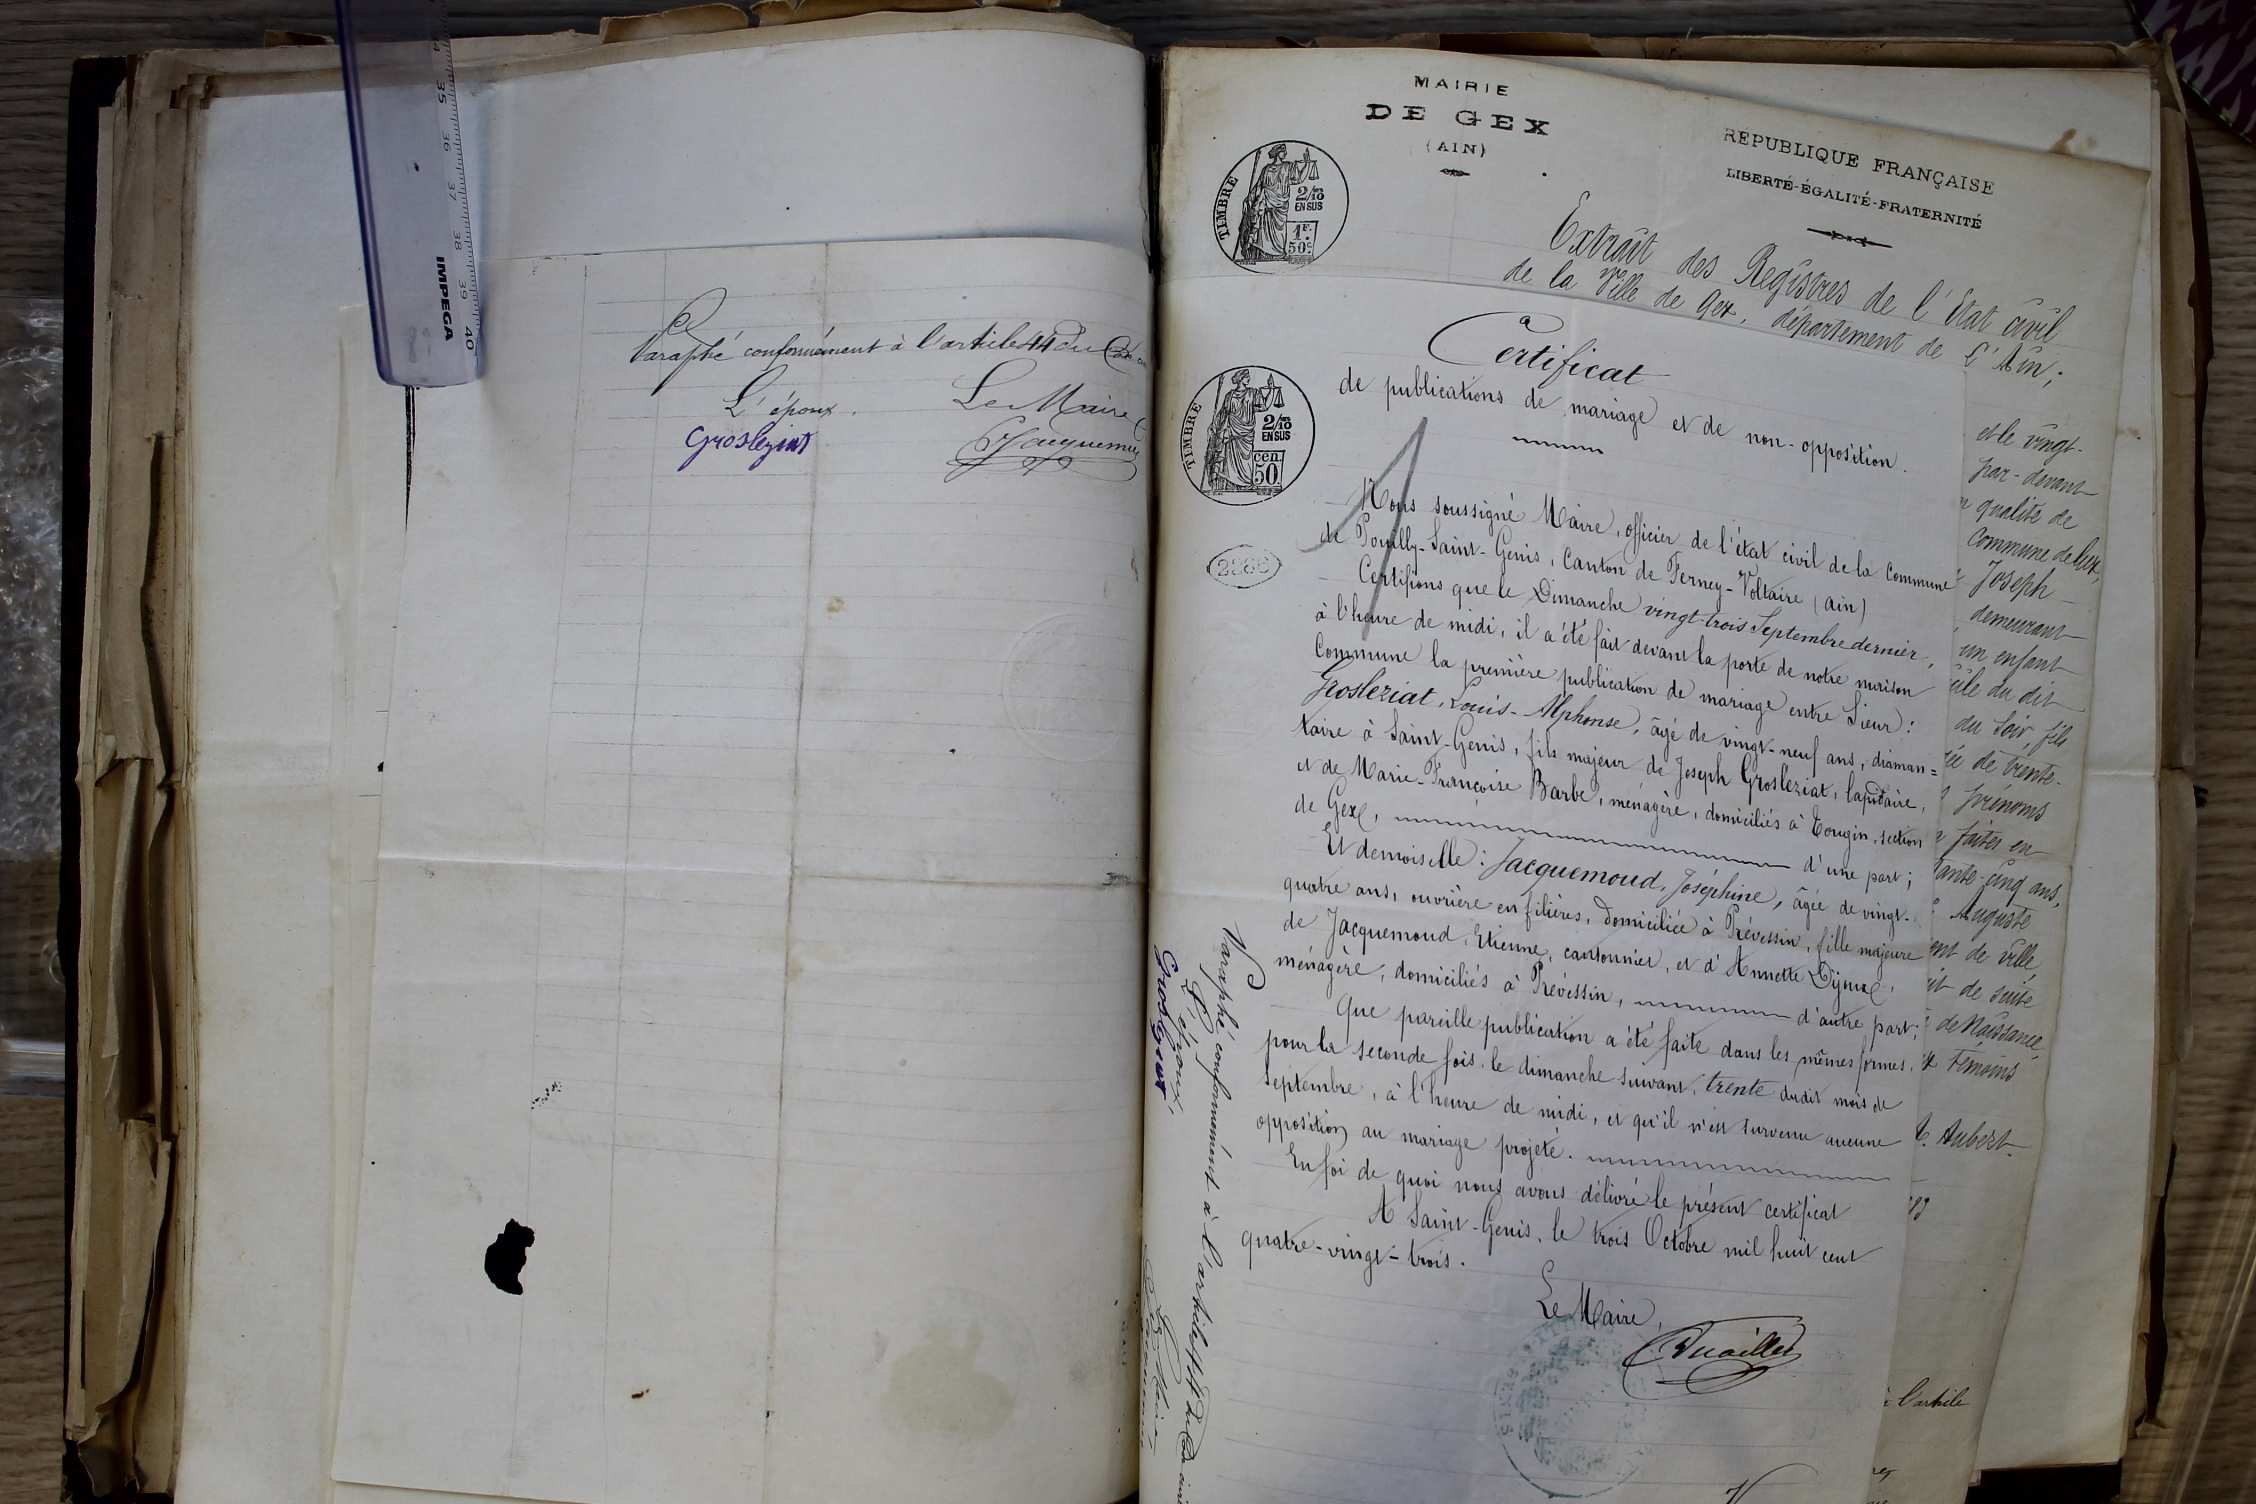 34 35 36 37 38 39 40
IMPEGA
Paraphé conformément à l'article 44 du Code
L'époux.
Le Maire
Grosleziat
Jacquemier
MAIRIE
DE GEX
(AIN)
RÉPUBLIQUE FRANÇAISE
LIBERTÉ-ÉGALITÉ-FRATERNITÉ
TIMBRE
2/10
EN SUS
1F.
50c
Extrait des Registres de l'Etat civil
de la Ville de Gex, département de l'Ain;
TIMBRE
2/10
EN SUS
cen.
50
Certificat
de publications de mariage et de non-opposition.
Nous soussigné Maire, officier de l'état civil de la Commune
de Pouilly-Saint-Genis, Canton de Ferney-Voltaire (Ain)
Certifions que le Dimanche vingt-trois Septembre dernier,
à l'heure de midi, il a été fait devant la porte de notre maison
Commune la première publication de mariage entre Sieur:
Grosleziat, Louis-Alphonse, âgé de vingt-neuf ans, diaman=
taire à Saint-Genis, fils majeur de Joseph Grosleziat, lapidaire,
et de Marie-Françoise Barbe, ménagère, domiciliés à Tougin, section
de Gex, d'une part;
Et demoiselle: Jacquemoud, Joséphine, âgée de vingt-
quatre ans, ouvrière en filières, domiciliée à Prévessin, fille majeure
de Jacquemoud, Etienne, cantonnier, et d'Annette
ménagère, domiciliés à Prévessin, d'autre part;
Que pareille publication a été faite dans les mêmes formes,
pour la seconde fois, le dimanche suivant, trente dudit mois de
Septembre, à l'heure de midi, et qu'il n'est survenu aucune
opposition au mariage projeté.
En foi de quoi nous avons délivré le présent certificat
A Saint-Genis, le trois Octobre mil huit cent
quatre-vingt-trois.
Le Maire,
Paraphé conformément à l'article 44 du Code civil
L'époux,
Grosleziat
Le Maire
et le vingt-
par-devant
qualité de
Commune de Gex,
Joseph
demeurant
un enfant
du dit
du soir, fils
de trente-
prénoms
faites en
ante-cinq ans,
Auguste
de ville
de suite
de Naissance,
Témoins
Aubert.
l'article